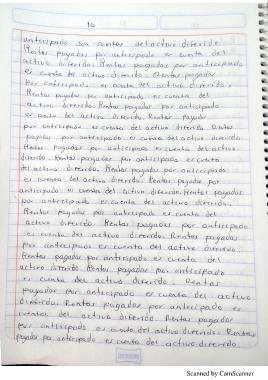 10
anticipado son cuentas del activo diferido
Rentas pagadas por anticipado es cuenta del
activo diferido. Rentas pagadas por anticipado
es cuenta del activo diferido. Rentas pagadas
por anticipado es cuenta del activo diferido.
Rentas pagadas por anticipado es cuenta del
activo diferido. Rentas pagadas por anticipado
es cuenta del activo diferido. Rentas pagadas
por anticipado es cuenta del activo diferido. Rentas
pagadas por anticipado es cuenta del activo diferido.
Rentas pagadas por anticipado es cuenta del activo
diferido. Rentas pagadas por anticipado es cuenta
del activo diferido. Rentas pagadas por anticipado
es cuenta del activo diferido. Rentas pagadas por
anticipado es cuenta del activo diferido. Rentas pagadas
por anticipado es cuenta del activo diferido.
Rentas pagadas por anticipado es cuenta del
activo diferido. Rentas pagadas por anticipado
es cuenta del activo diferido. Rentas pagadas
por anticipado es cuenta del activo diferido.
Rentas pagadas por anticipado es cuenta del
activo diferido. Rentas pagadas por anticipado
es cuenta del activo diferido. Rentas
pagadas por anticipado es cuenta del activo
diferido. Rentas pagadas por anticipado es
cuenta del activo diferido. Rentas pagadas por
anticipado es cuenta del activo diferido. Rentas
pagadas por anticipado es cuenta del activo diferido
Scanned by CamScanner